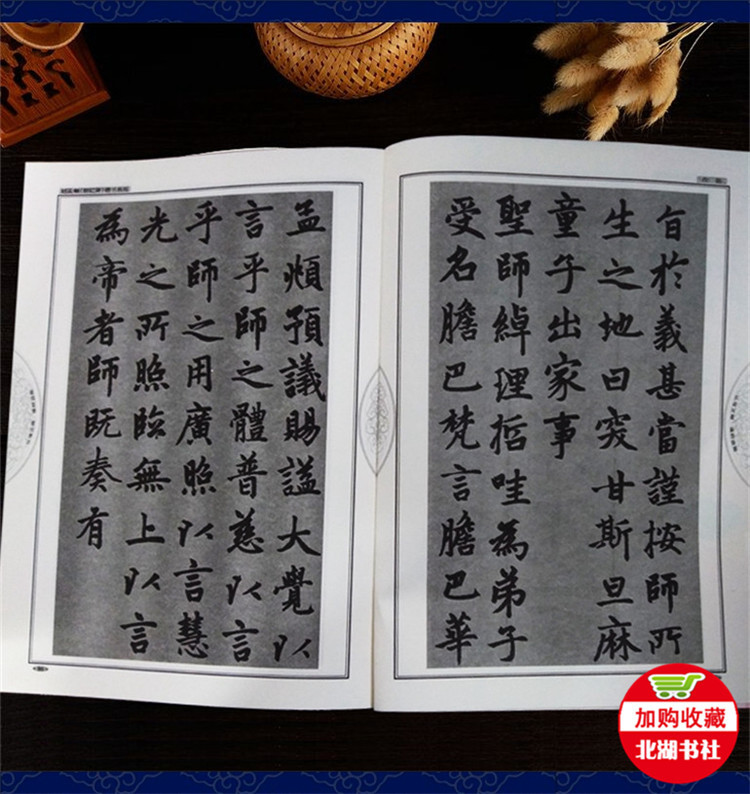 孟頫預議賜謚大覺以
言乎師之體普慈以言
乎師之用廣照以言慧
光之所照臨無上以言
為帝者師既奏有
旨於義甚當謹按師所
生之地曰突甘斯旦麻
童子出家事
聖師綽理哲哇為弟子
受名膽巴梵言膽巴華
加购收藏
北湖书社